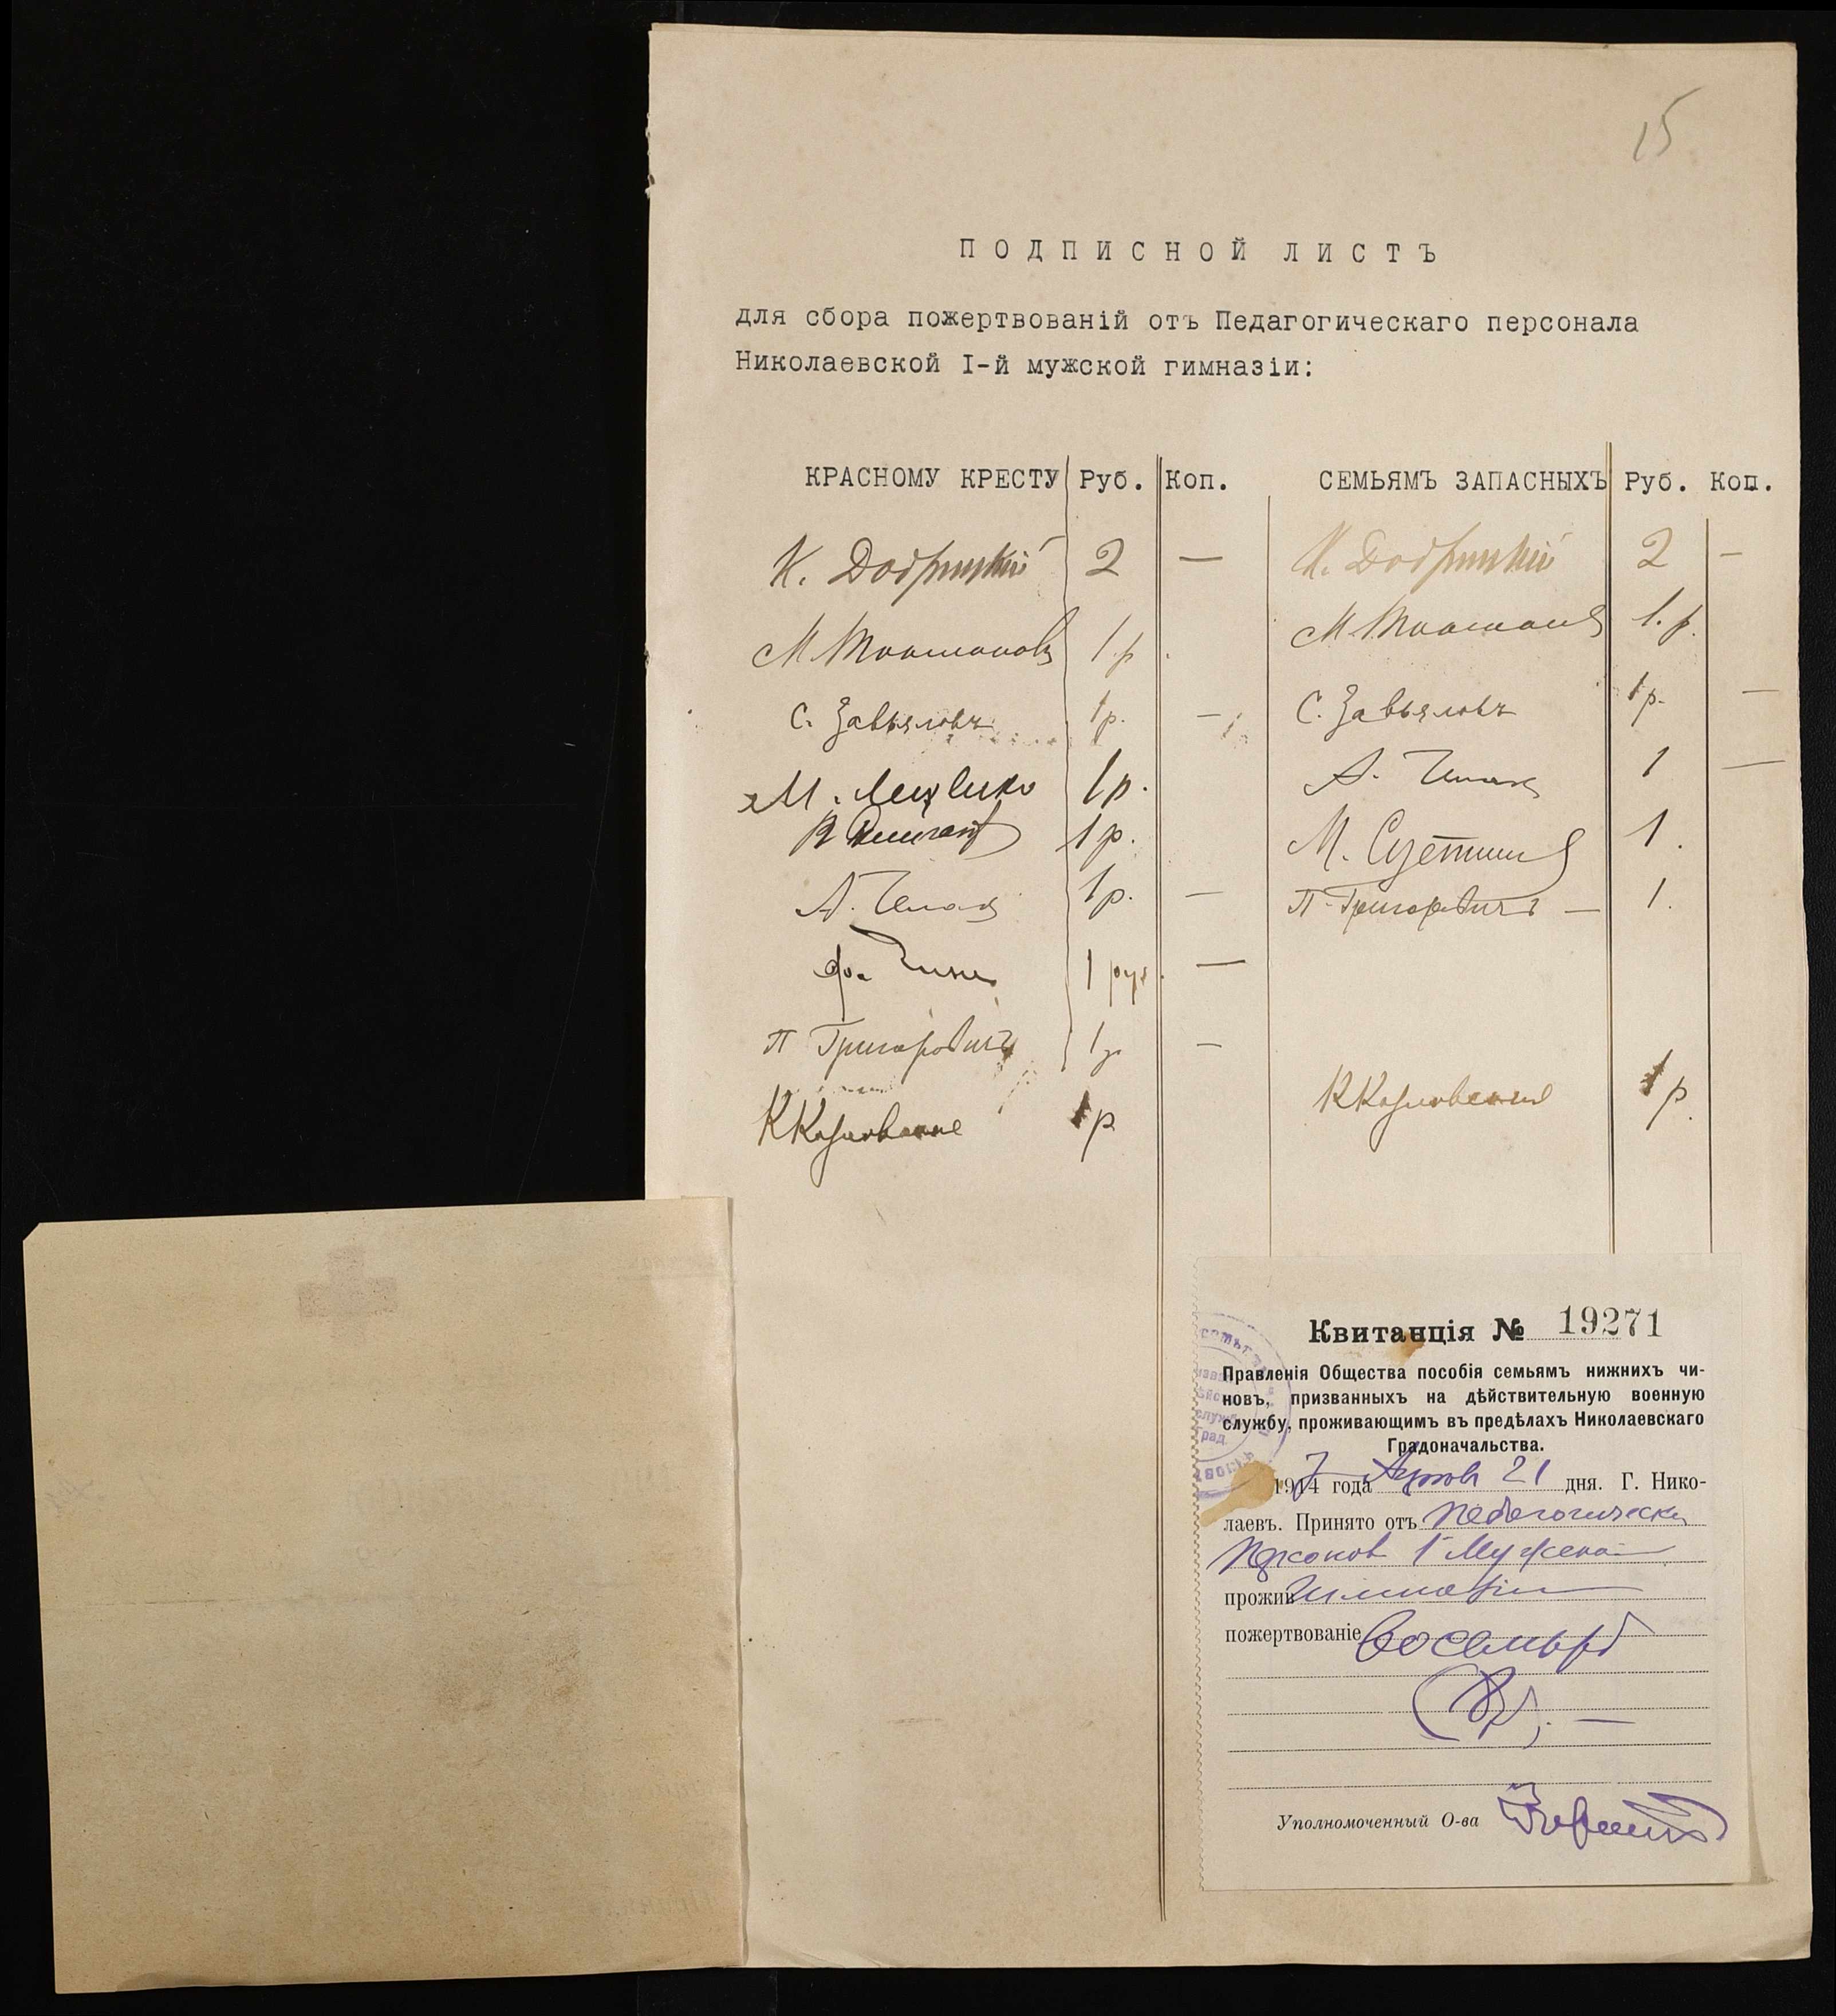 15
ПОДПИСНОЙ ЛИСТЪ
для сбора пожертвованій отъ Педагогическаго персонала
Николаевской I-й мужской гимназіи:
КРАСНОМУ КРЕСТУ Руб. Коп. СЕМЬЯМЪ ЗАПАСНЫХЪ Руб. Коп.
К. 2 — К. 2 —
М. 1 р. М. 1. р.
С. Завьяловъ 1 р. — С. Завьяловъ 1 р. —
М. 1 р. А. 1 —
1 р. М. 1.
А. 1 р. — П. Григоровичъ — 1.
1 руб. —
П Григоровичъ 1 р —
К 1 р К 1 р.
Квитанція № 19271
Правленія Общества пособія семьямъ нижнихъ чи-
новъ, призванныхъ на дѣйствительную военную
службу, проживающимъ въ предѣлахъ Николаевскаго
Градоначальства.
1914 года 21 дня. Г. Нико-
лаевъ. Принято отъ Педагогическ
1 Мужской
прожив Гимназіи
пожертвованіе восемь рб
(8 р). —
Уполномоченный О-ва